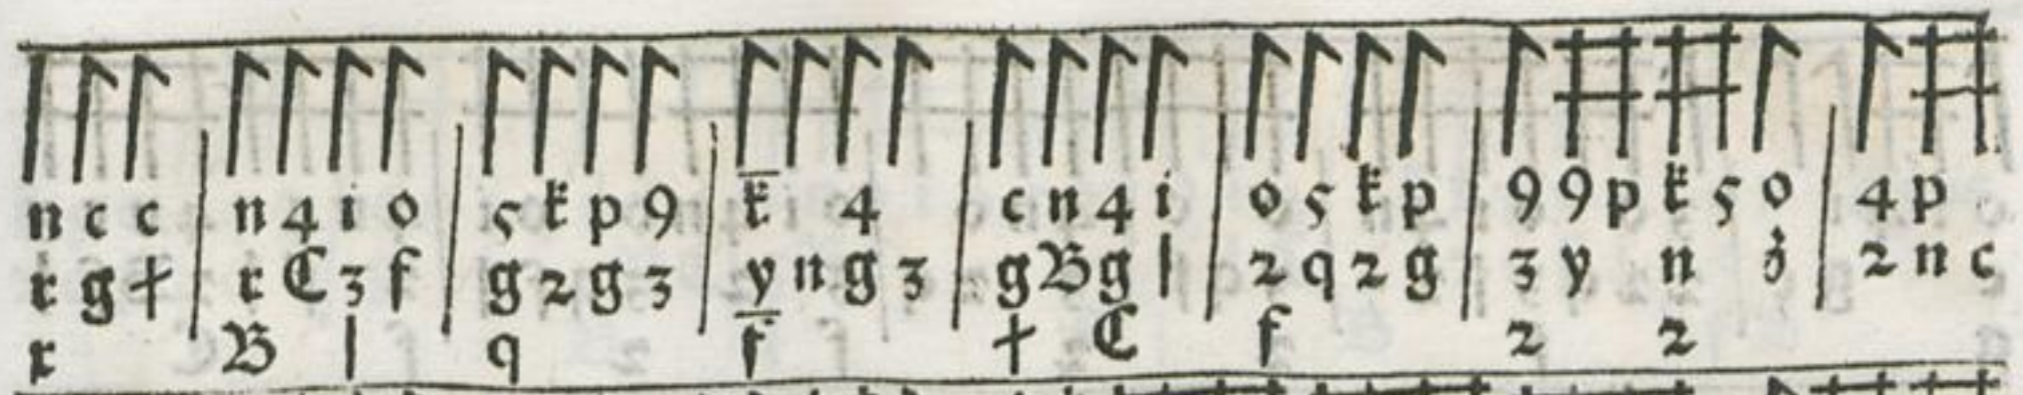 n c c | n 4 i o | 5 k p 9 | k̅ 4 | c n 4 i | o 5 k p | 9 9 p k 5 o | 4 p
r g † | r C 3 f | g 2 g 3 | y n g 3 | g B g l | 2 q 2 g | 3 y n d | 2 n c
r B l q f̅ † C f 2 2